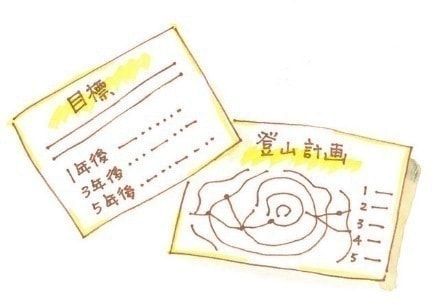 目標
1年後
3年後
5年後
登山計画
1
2
3
4
5